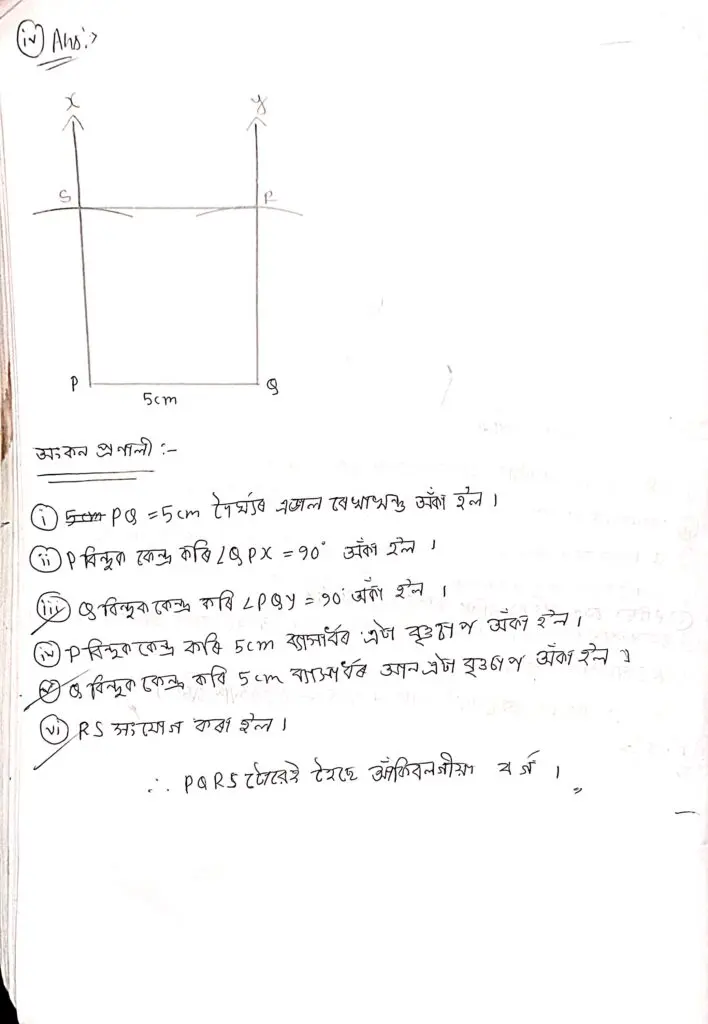 (iv) Ans:→
X
Y
S
R
P
Q
5cm
অংকন প্ৰণালী :-
(i) 5cm PQ = 5cm দৈৰ্ঘ্যৰ এডাল ৰেখাখণ্ড অঁকা হ'ল ।
(ii) P বিন্দুক কেন্দ্ৰ কৰি ∠QPX = 90° অঁকা হ'ল ।
(iii) Q বিন্দুক কেন্দ্ৰ কৰি ∠PQY = 90° অঁকা হ'ল ।
(iv) P বিন্দুক কেন্দ্ৰ কৰি 5cm ব্যাসাৰ্ধৰ এটা বৃত্তচাপ অঁকা হ'ল ।
(v) Q বিন্দুক কেন্দ্ৰ কৰি 5cm ব্যাসাৰ্ধৰ আন এটা বৃত্তচাপ অঁকা হ'ল ।
(vi) RS সংযোগ কৰা হ'ল ।
∴ PQRS টোৱেই হৈছে আঁকিবলগীয়া বৰ্গ ।